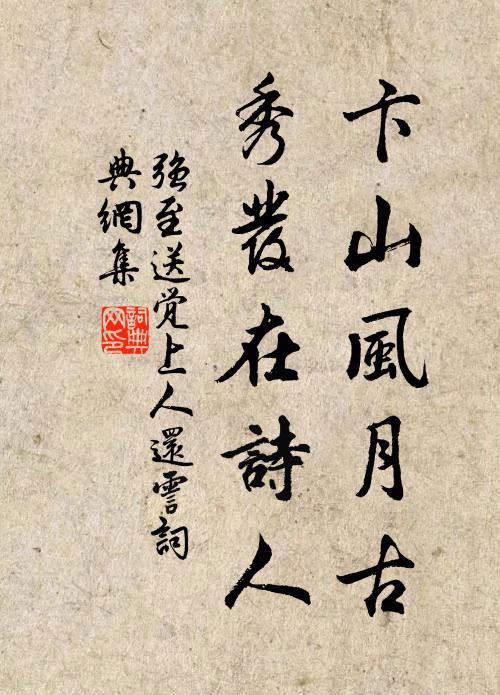 卞山風月古
秀發在詩人
强至送觉上人還霅詞
典網集
詞典網印